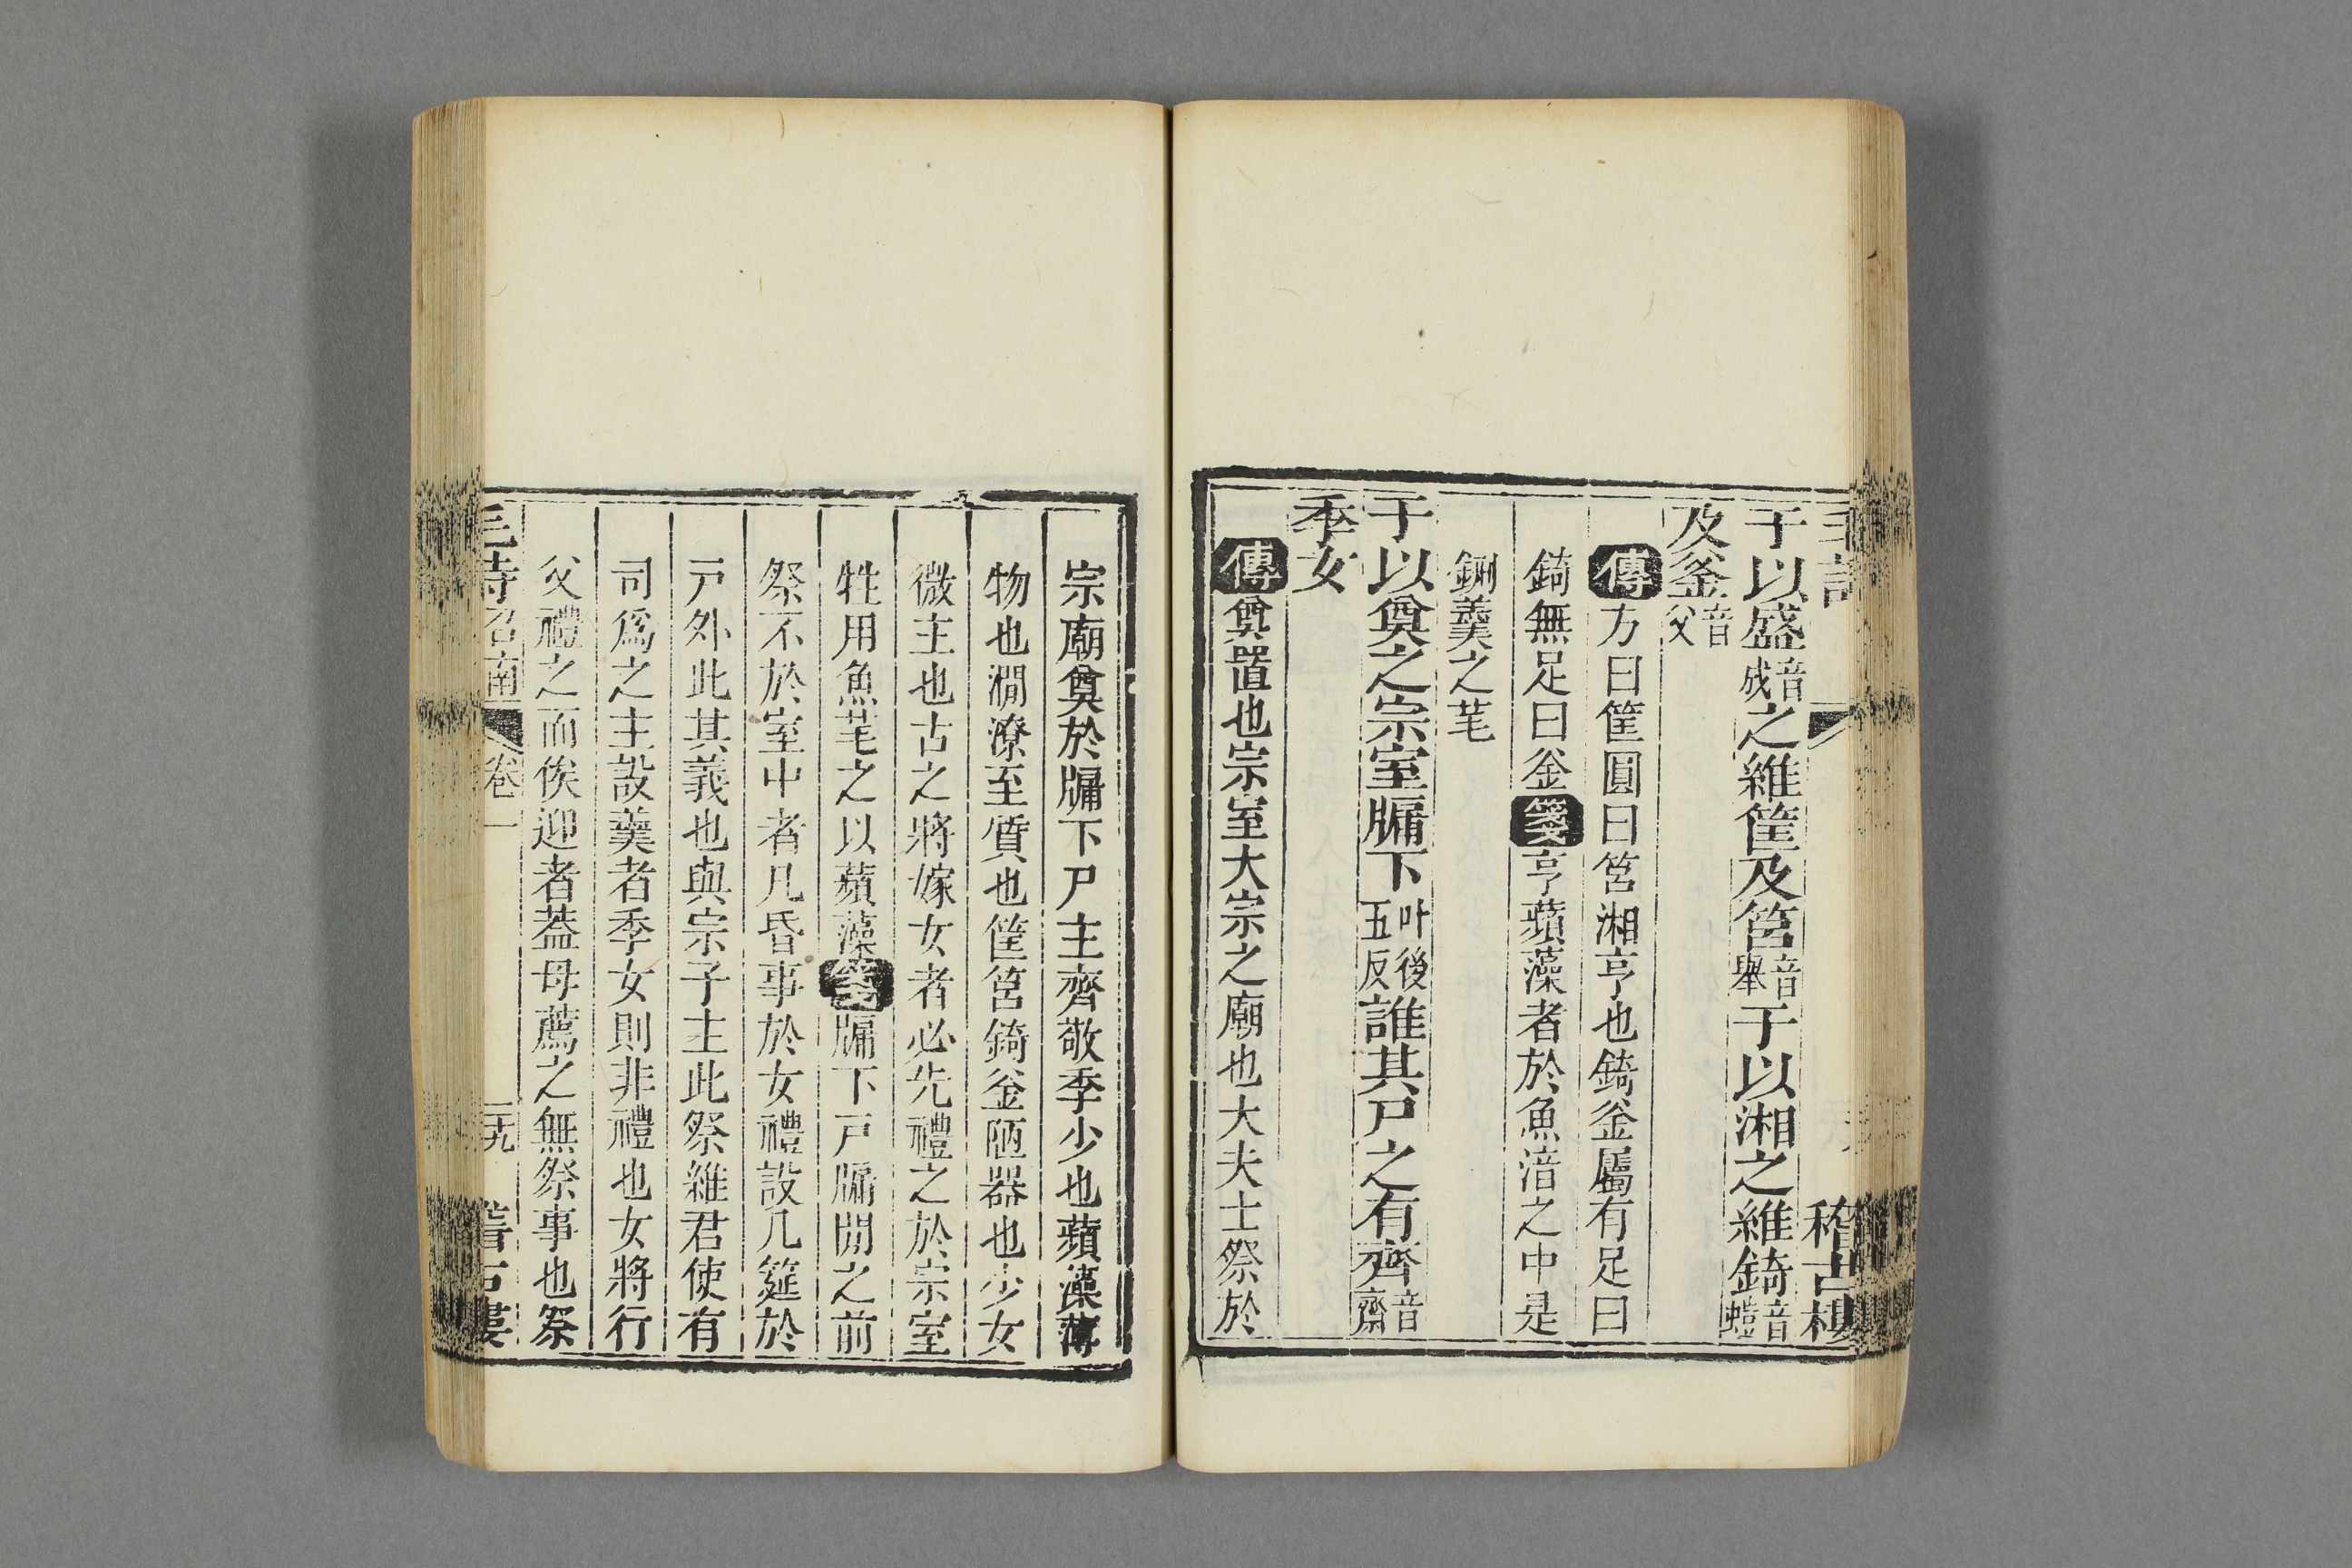 稽古樓
于以盛音成之維筐及筥音舉于以湘之維錡音螘
及釜音父
傳方曰筐圓曰筥湘亨也錡釜屬有足曰
錡無足曰釜箋亨蘋藻者於魚湆之中是
鉶羹之芼
于以奠之宗室牖下叶後五反誰其尸之有齊音齋
季女
傳奠置也宗室大宗之廟也大夫士祭於
宗廟奠於牖下尸主齊敬季少也蘋藻薄
物也澗潦至質也筐筥錡釜陋器也少女
微主也古之將嫁女者必先禮之於宗室
牲用魚芼之以蘋藻箋牖下戶牖閒之前
祭不於室中者凡昏事於女禮設几筵於
戶外此其義也與宗子主此祭維君使有
司爲之主設羹者季女則非禮也女將行
父禮之而俟迎者蓋母薦之無祭事也祭
詩召南 卷一 二十九